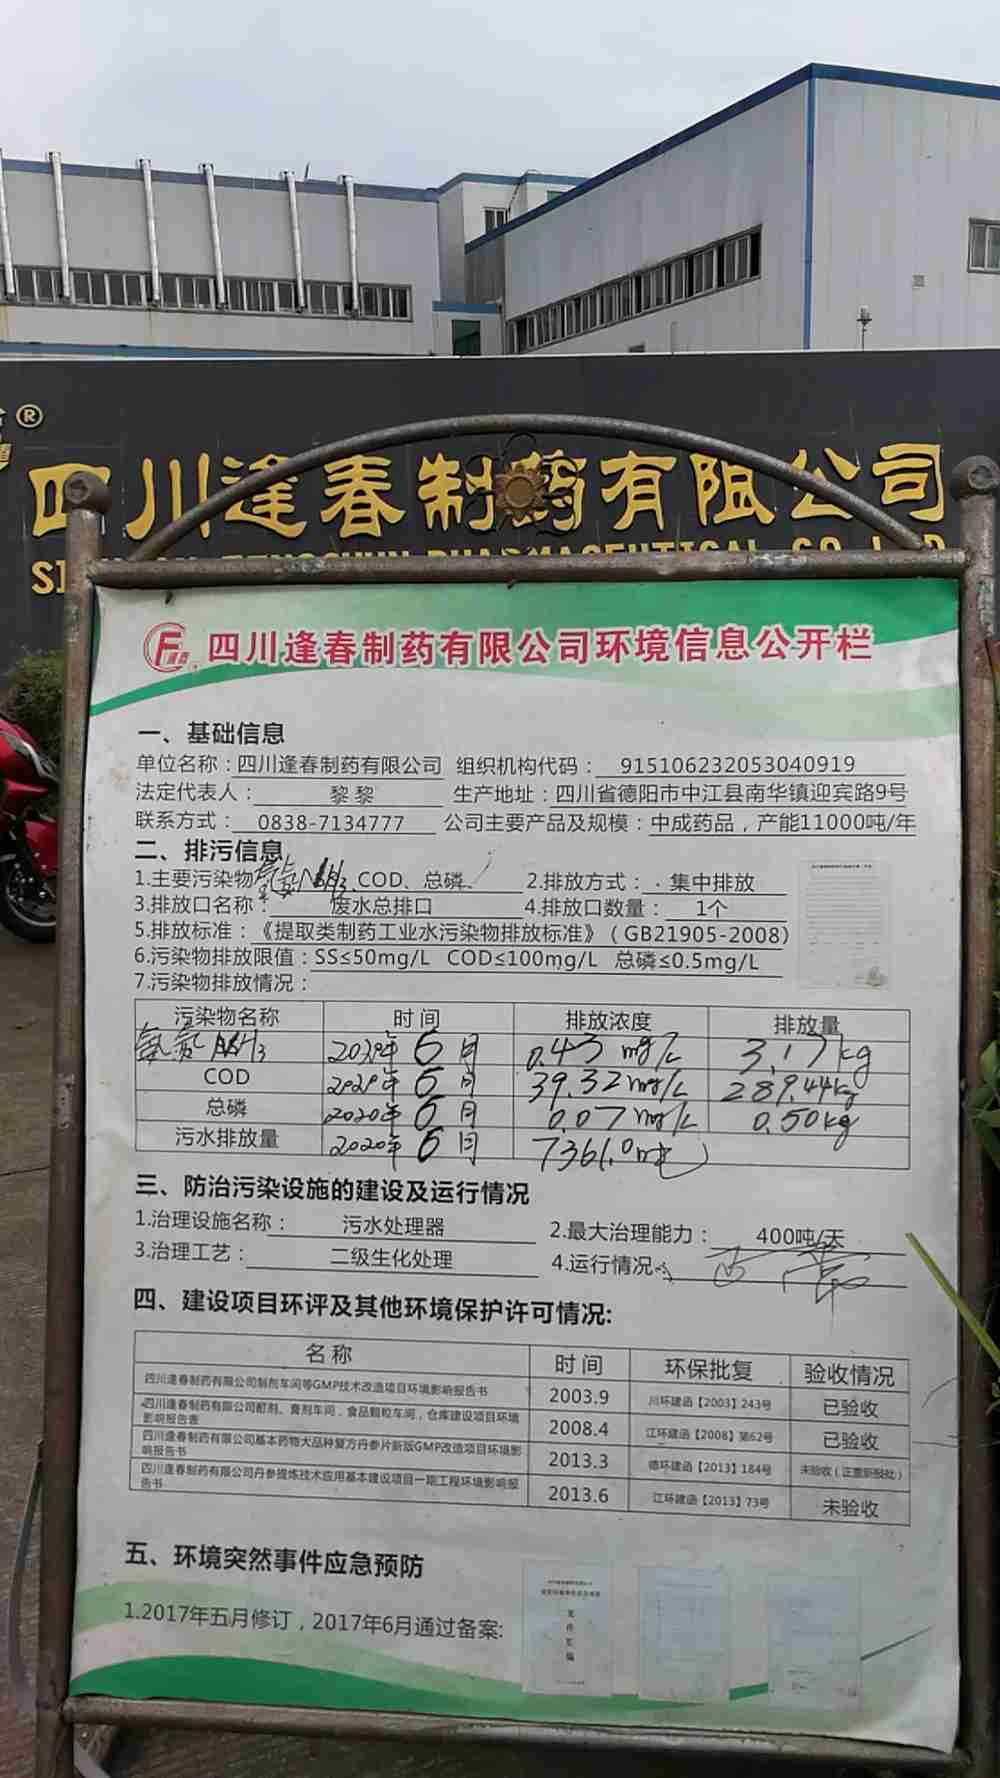 ®
四川逢春制药有限公司
四川逢春制药有限公司环境信息公开栏
一、基础信息
单位名称：四川逢春制药有限公司 组织机构代码：915106232053040919
法定代表人：黎黎 生产地址：四川省德阳市中江县南华镇迎宾路9号
联系方式：0838-7134777 公司主要产品及规模：中成药品，产能11000吨/年
二、排污信息
1.主要污染物氨氮NH3、COD、总磷、 2.排放方式：集中排放
3.排放口名称：废水总排口 4.排放口数量：1个
5.排放标准：《提取类制药工业水污染物排放标准》（GB21905-2008）
6.污染物排放限值：SS≤50mg/L COD≤100mg/L 总磷≤0.5mg/L
7.污染物排放情况：
污染物名称 时间 排放浓度 排放量
氨氮 NH3 2020年6月 0.43 mg/L 3.17kg
COD 2020年6月 39.32mg/L 289.44kg
总磷 2020年6月 0.07mg/L 0.50kg
污水排放量 2020年6月 7361.0吨
三、防治污染设施的建设及运行情况
1.治理设施名称：污水处理器 2.最大治理能力：400吨/天
3.治理工艺：二级生化处理 4.运行情况：正常
四、建设项目环评及其他环境保护许可情况:
名称 时间 环保批复 验收情况
四川逢春制药有限公司制剂车间等GMP技术改造项目环境影响报告书 2003.9 川环建函【2003】243号 已验收
四川逢春制药有限公司酊剂、膏剂车间，食品颗粒车间，仓库建设项目环境
影响报告表 2008.4 江环建函【2008】第62号 已验收
四川逢春制药有限公司基本药物大品种复方丹参片新版GMP改造项目环境影
响报告书 2013.3 德环建函【2013】184号 未验收（正重新报批）
四川逢春制药有限公司丹参提炼技术应用基本建设项目一期工程环境影响报
告书 2013.6 江环建函【2013】73号 未验收
五、环境突然事件应急预防
1.2017年五月修订，2017年6月通过备案: